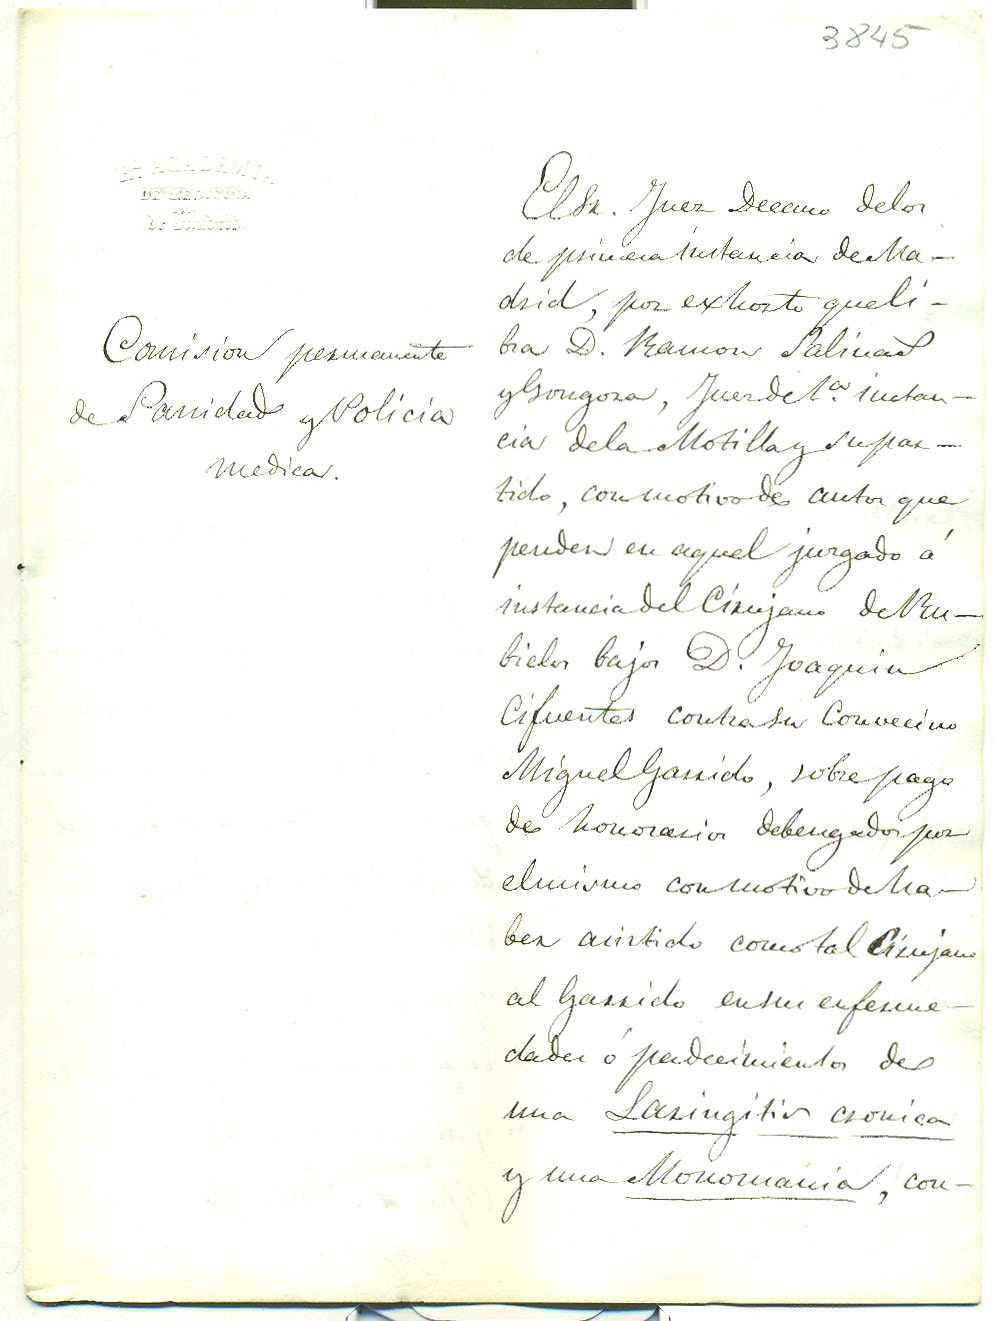 3845
Rl ACADEMIA
DE MEDICINA
DE MADRID.
Comision permanente
de Sanidad y Policia
medica.
El Sr. Juez Decano delos
de primera instancia de Ma-
drid, por exhorto que li-
bra D. Ramon Salinas
y Gongora, Juez de 1.ª instan-
cia dela Motilla y su par-
tido, con motivo de autos que
penden en aquel juzgado á
instancia del Cirujano de Ru-
bielos bajos D. Joaquin
Cifuentes contra su Convecino
Miguel Garrido, sobre pago
de honorarios debengados por
el mismo con motivo de ha-
ber asistido como tal Cirujano
al Garrido en su enferme-
dades ó padecimientos de
una Laringitis cronica
y una Monomania, con-